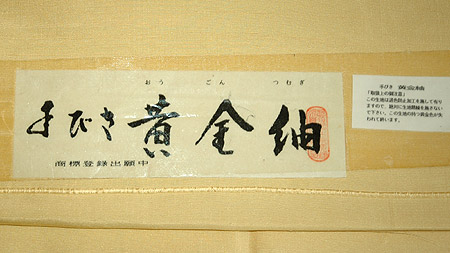 おう ごん つむぎ
手びき黄金紬
商標登録出願中
手びき 黄金紬
「取扱上の御注意」
この生地は退色防止加工を施して有り
ますので、絶対に生地蒸絨を施さない
で下さい。この生地の持つ黄金色が失
われて終います。